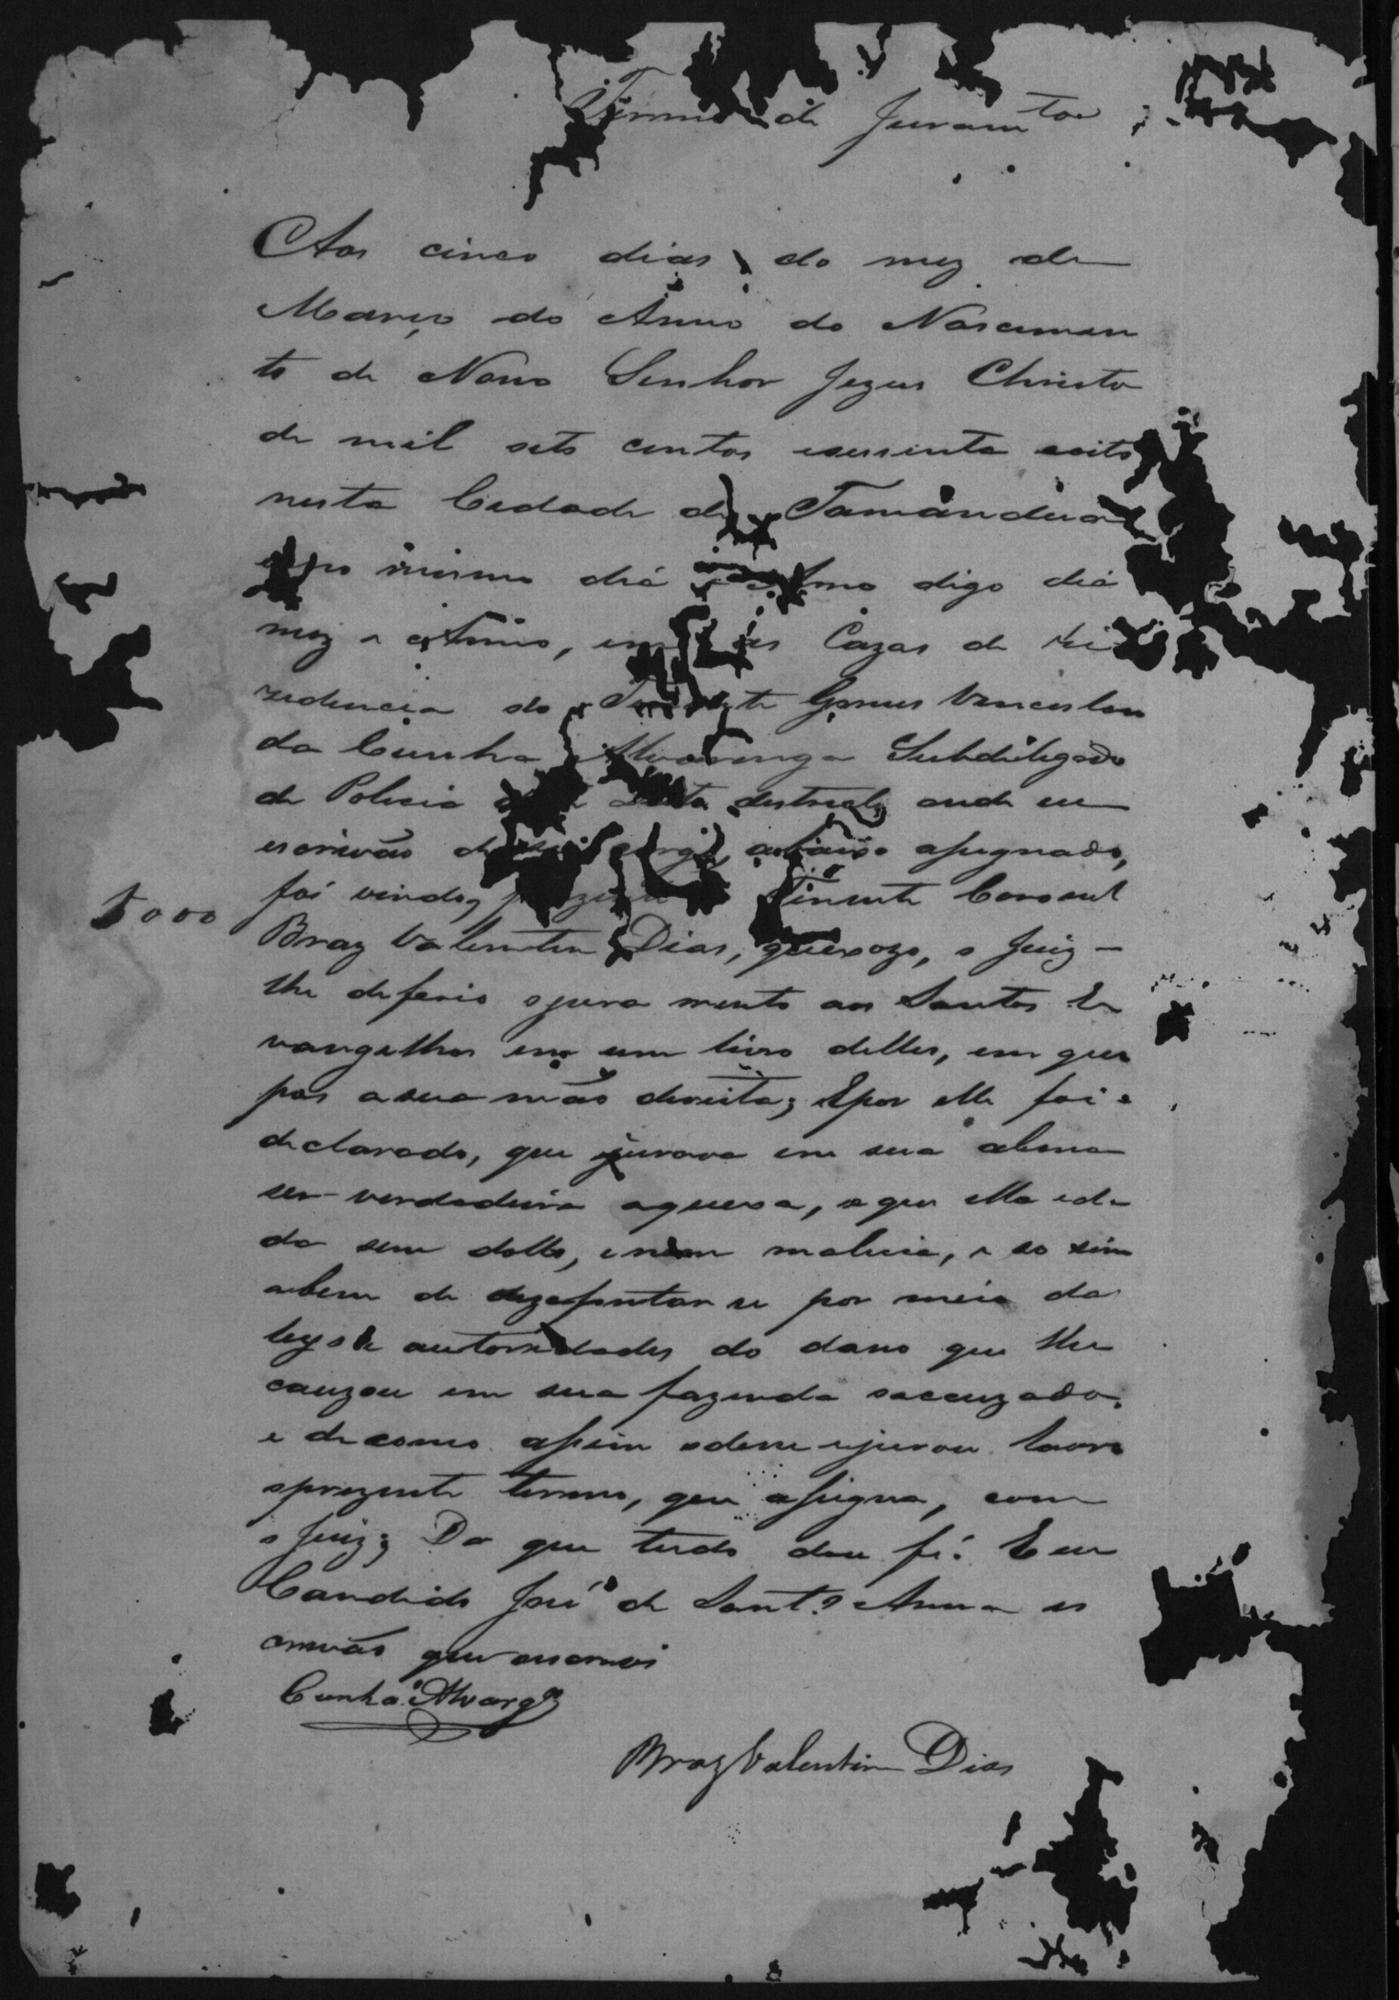 Termo de Juram.to
Aos cinco dias do mez de
Março do Anno do Nascimen
to de Nosso Senhor Jezus Christo
de mil oito centos esessenta eoito
nesta Cidade de Tamanduá
no mesmo diá digo diá
mez e Anno, em Cazas de rei
zedencia do Tenente Gomes Vencesláu
da Cunha Alvarenga Subdelegado
de Policia desta destricto, onde eu
escrivão de cargo abaixo assignado,
foi vindo, Tinente Coronel
5000
Braz Valentim Dias, queixozo, o Juiz –
lhe deferio ojura mento aos Santos E
vangelhos em um livro delles, em que
pos asua mão direita; Epor elle foi
declarado, que jurava em sua alma
ser verdadeira aqueixa, e que ella éda
da sem dollo, enem malicia, e so sim
abem de dezafrontar se por meio da
leys e autoridades do dano que lhe
cauzou em sua fazenda oaccuzado.
e decomo assim odisse ejurou lavro
oprezente termo, que assigna, com
o Juiz; Do que tudo dou fé. Eeu
Candido José de Sant.ª Anna es
crivão que oescrevi
Cunha Alvarg.ª
Braz Valentim Dias